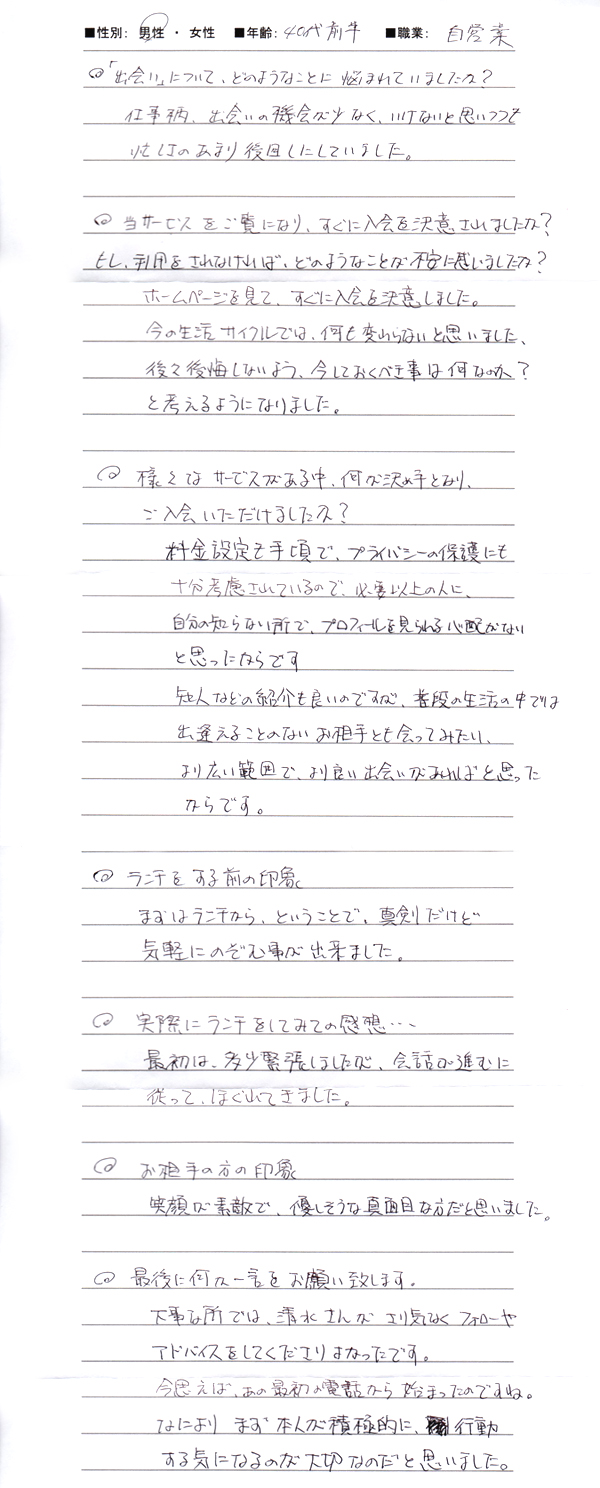 ■性別: 男性 ・ 女性 ■年齢: 40代前半 ■職業: 自営業
◎「出会い」について、どのようなことに悩まれていましたか?
仕事柄、出会いの機会が少なく、いけないと思いつつも
忙しさのあまり後回しにしていました。
◎ 当サービスをご覧になり、すぐに入会を決意されましたか?
もし、利用をされなければ、どのようなことが不安に感じましたか?
ホームページを見て、すぐに入会を決意しました。
今の生活サイクルでは、何も変わらないと思いました、
後々後悔しないよう、今しておくべき事は何なのか?
と考えるようになりました。
◎ 様々なサービスがある中、何が決め手となり、
ご入会いただけましたか?
料金設定も手頃で、プライバシーの保護にも
十分考慮されているので、必要以上の人に、
自分の知らない所で、プロフィールを見られる心配がない
と思ったからです
知人などの紹介も良いのですが、普段の生活の中では
出逢えることのないお相手とも会ってみたい、
より広い範囲で、より良い出会いがあればと思った
からです。
◎ ランチをする前の印象
まずはランチから、ということで、真剣だけど
気軽にのぞむ事が出来ました。
◎ 実際にランチをしてみての感想…
最初は、多少緊張しましたが、会話が進むに
従って、ほぐれてきました。
◎ お相手の方の印象
笑顔が素敵で、優しそうな真面目な方だと思いました。
◎ 最後に何か一言をお願い致します。
大事な所では、清水さんがさり気なくフォローや
アドバイスをしてくださりよかったです。
今思えば、あの最初の電話から始まったのですね。
なにより まず本人が積極的に、行動
する気になるのが大切なのだと思いました。